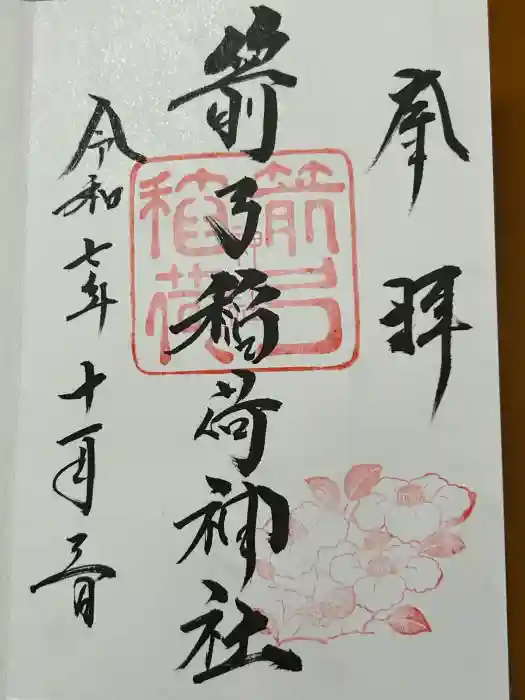 奉拝
箭弓稲荷神社
令和七年十一月三日
箭弓稲荷